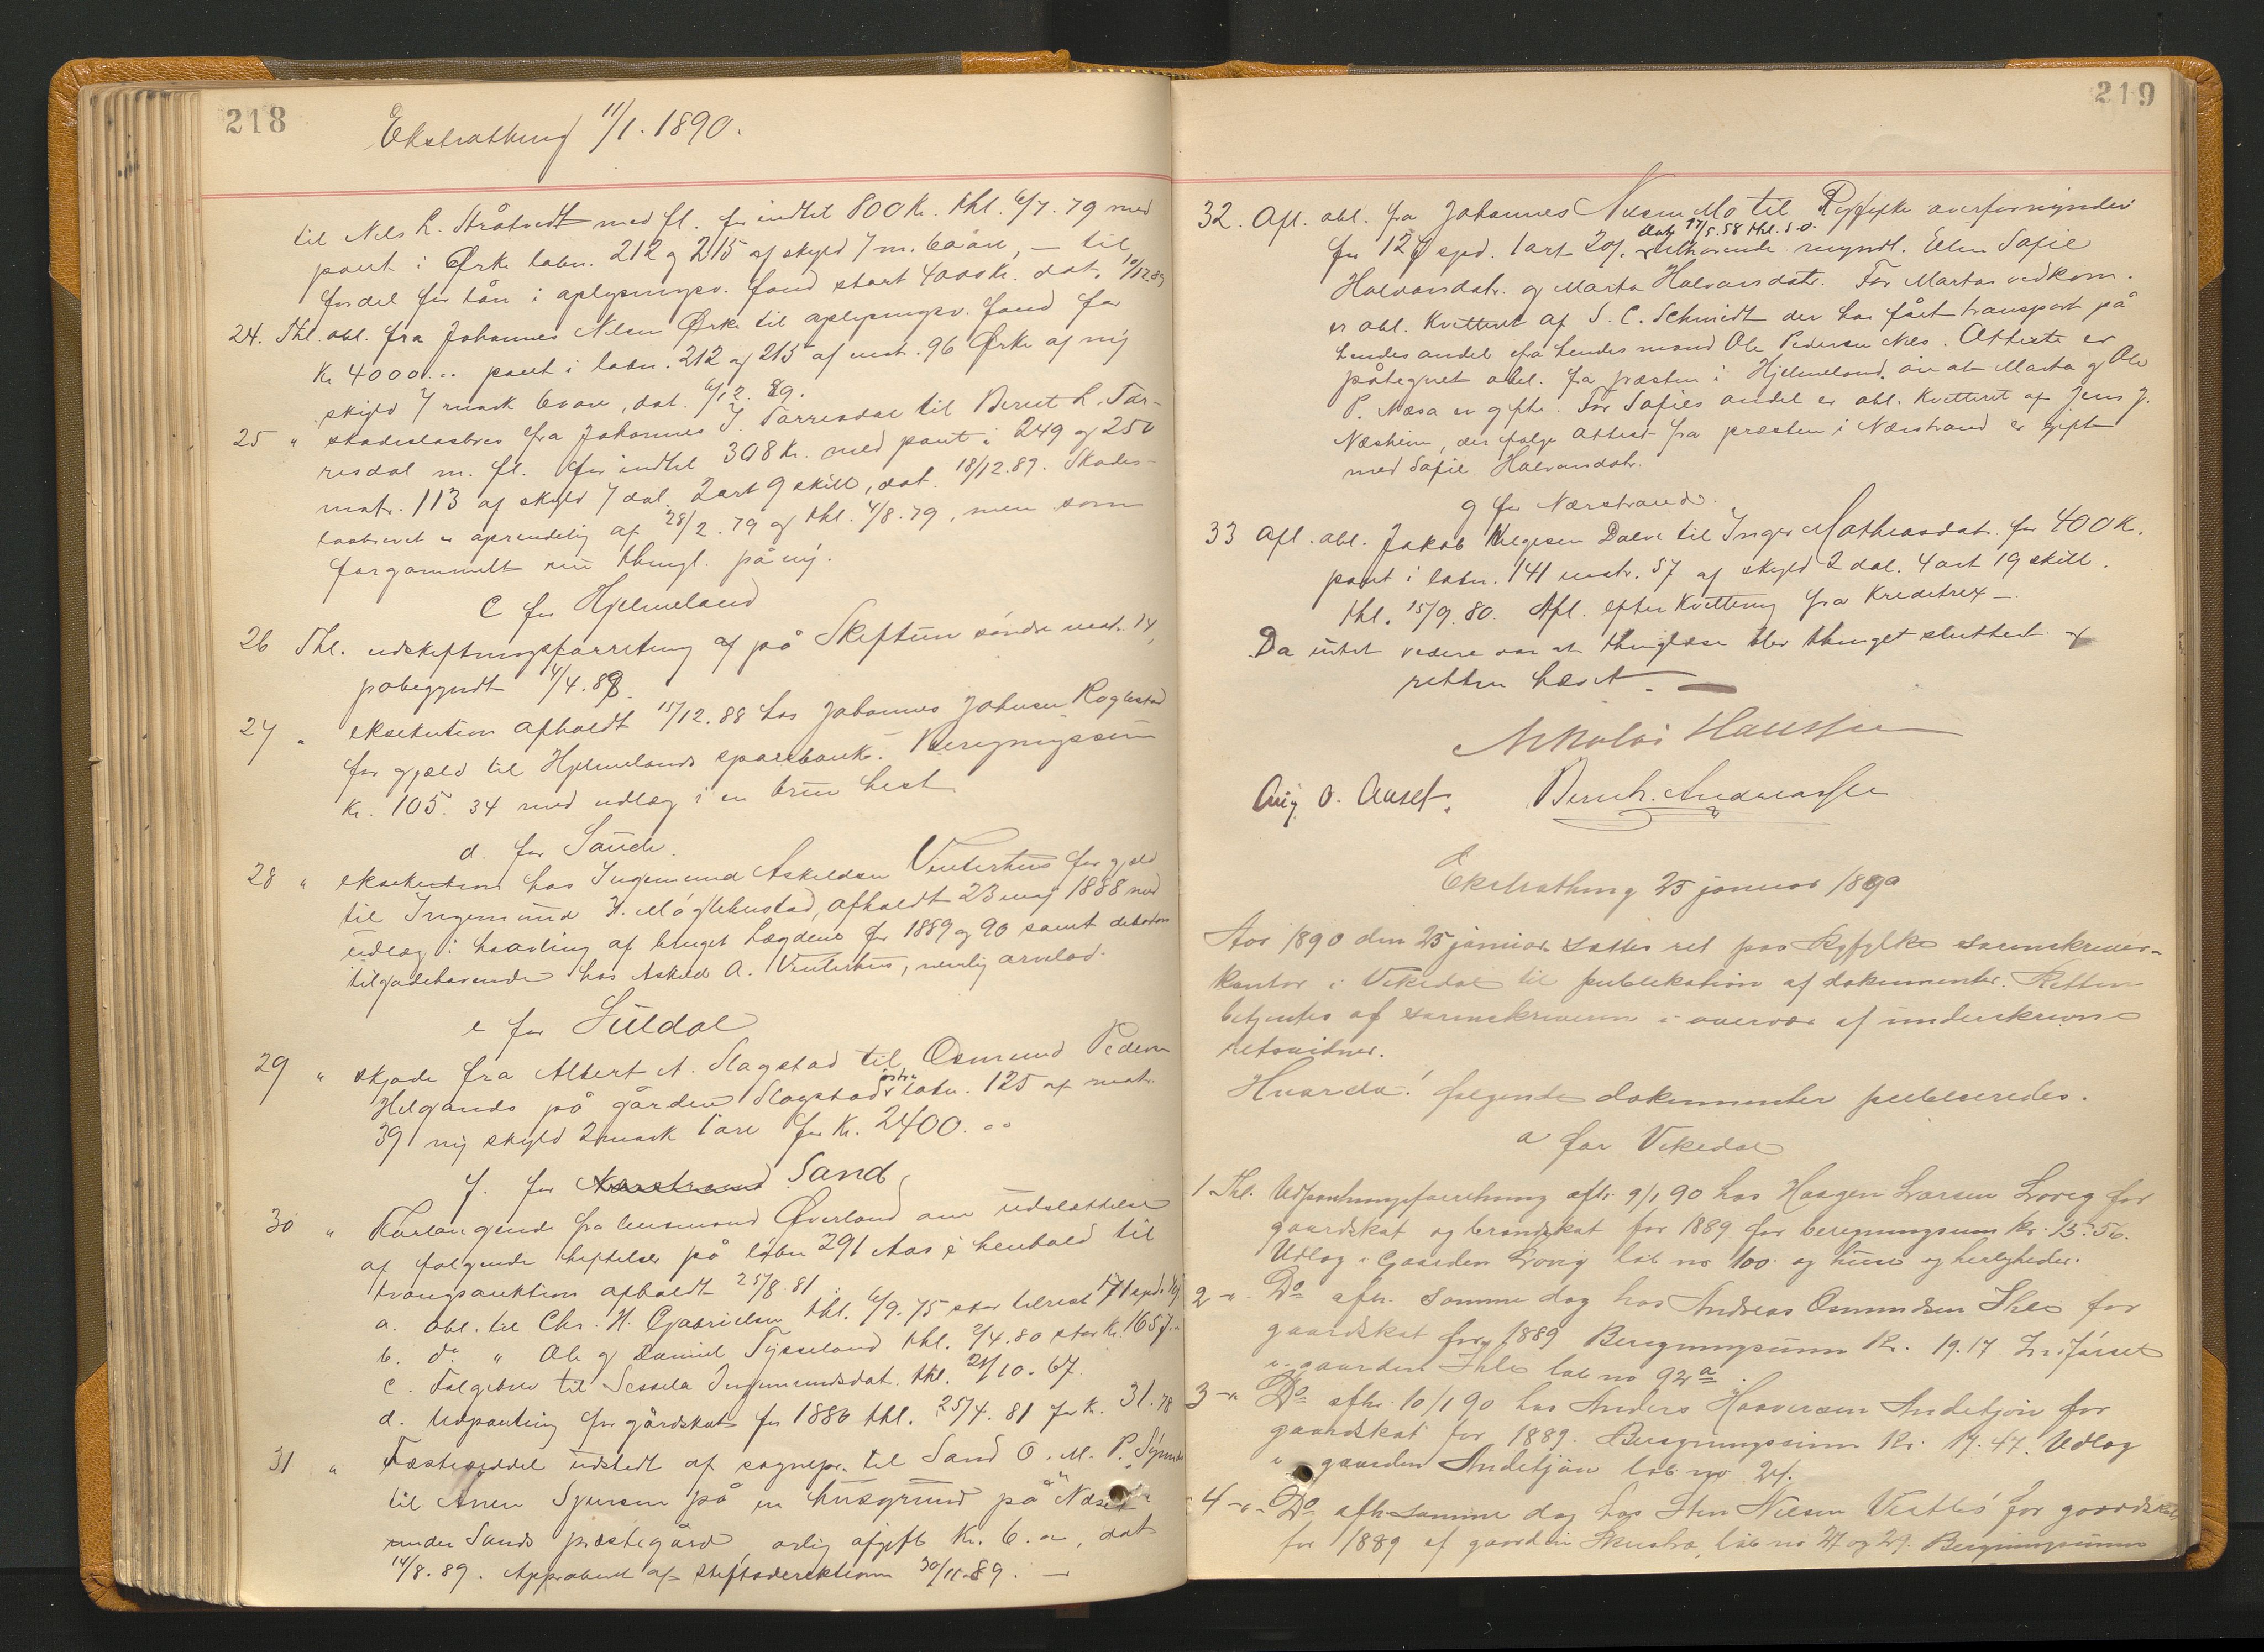 218
Ekstrathing 11/1. 1890.
til Nils L. Stråtvedt med fl. for indtil 800 Kr. thl. 6/7. 79 med
pant i Ørke løbn. 212 og 215 af skyld 7 m. 60 øre, – til
fordel for lån i oplysningsv. fond stort 4000 Kr. dat. 10/12.89
24. Thl. obl. fra Johannes Nilsen Ørke til oplysningsv. fond for
Kr 4000... pant i løbn. 212 og 215 af matr. 96 Ørke af ny
skyld 7 mark 60 øre, dat. 6/12. 89.
25 " skadesløsbrev fra Johannes J. Tørresdal til Bernt L. Tør-
resdal m. fl. for indtil 308 Kr. med pant i 249 og 250
matr. 113 af skyld 7 dal. 2 ort 9 skill, dat. 18/12.89. Skades-
løsbrevet er oprindelig af 28/2. 79 og thl. 4/8. 79, men som
forgammelt nu thingl. på ny.
C for Hjelmeland
26 Thl. udskiftningsforretning af på Skiftun søndre mat. 14,
påbegyndt 4/4. 89.
27 " eksekution afholdt 15/12. 88 hos Johannes Johnsen
for gjæld til Hjelmelands sparebank. Beregningssum
Kr. 105. 34 med udlæg i en brun hest
d. for Saude.
28 " eksekution hos Ingemund Askildsen Vinterhus for gjæld
til Ingemund H. Møglebustad, afholdt 23 maj 1888 med
udlæg i haavling af bruget Lægdene for 1889 og 90 samt debitors
tilgodehavende hos Askild A. Vinterhus, nemlig arvelod.
e for Suldal
29 " skjøde fra Albert A. Slagstad til Osmund Pedersen
Helgands på gården Slagstad østre løbn. 125 af matr.
39 ny skyld 2 mark 1 øre for Kr. 2400. ..
f. for Nærstrand Sand
30 " Forlangende fra lensmand Øverland om udslettelse
af følgende heftelser på løbn 291 Aas i henhold til
tvangsauktion afholdt 25/8. 81
a. obl. til Chr. H. Gabrielsen thl. 6/9. 75 stor tilrest 171 spd.
b. do. " Ole og Daniel Tysseland thl. 2/4. 80 stor Kr. 1657.
c. Følgebrev til Sessela Ingemundsdat. thl. 21/10. 67.
d. Udpanting for gårdskat for 1880 thl. 25/4. 81 for K. 31.78
31 " Fæsteseddel udstedt af sognepr. til Sand O. M. P.
til Anen Sjursen på en husgrund på "Næset"
under Sands præstegård, årlig afgift Kr. 6. .., dat
14/8. 89. Approberet af stiftsdirektionen 30/11. 89. –
219
32. Afl. obl. fra Johannes Nilsen Mo til Ryfylke overformynderi
dat 17/5. 58 thl. s. d.
for 127 spd. 1 ort 20/. tilhørende myndl. Ellen Sofie
Halvorsdatr. og Marta Halvorsdatr. For Martas vedkom.
er obl. kvitteret af S. C. Schmidt der har fået transport på
hendes andel fra hendes mand Ole Pedersen Næs. Attest er
påtegnet obl. fra præsten i Hjelmeland om at Marta og Ole
P. Næsa er gifte. For Sofies andel er obl. kvitteret af Jens J.
Næsheim, der følge attest fra præsten i Nærstrand er gift
med Sofie Halvorsdatr.
g for Nærstrand.
33 Afl. obl. Jakob Helgesen Dalve til Inger Mathiasdatr. for 400 K.
pant i løbn. 141 matr. 57 af skyld 2 dal. 4 ort 19 skill.
thl. 15/9. 80. Afl. efter kvittering fra kreditrix –.
Da intet videre var at thinglæse blev thinget sluttet og
retten hævet. –
Nikolai Hanssen
Aug. O. Auset. Bernh. Andreassen
Ekstrathing 25 januar 1890
Aar 1890 den 25 januar sattes ret paa Ryfylke sorenskriver-
kontor i Vikedal til publikation af dokumenter. Retten
betjentes af sorenskriveren i overvær af underskrevne
retsvidner.
Hvorda! følgende dokumenter publiseredes.
a for Vikedal
1 Thl. Udpantningsforretning afh. 9/1 90 hos Haagen Larsen Lovig for
gaardskat og brandskat for 1889 for beregningsum kr. 15.56.
Udlæg i Gaarden Lovig løb no 100. og huse og herligheder.
2 -"- Do afh. samme dag hos Andreas Osmundsen Ihle for
gaardskat for 1889 Beregningssum Kr. 19.17
i gaarden Ihle løb no 92 a.
3 -"- Do afh. 10/1 90 hos Anders Haaversen Andetjøn for
gaardskat for 1889. Beregningssum Kr. 17.47. Udlæg
i gaarden Andetjøn løb no 24.
4 -"- Do afh samme dag hos Sten Nilsen Vestbø for gaardskat
for 1889 af gaarden løb no 27 og 29. Beregningssum